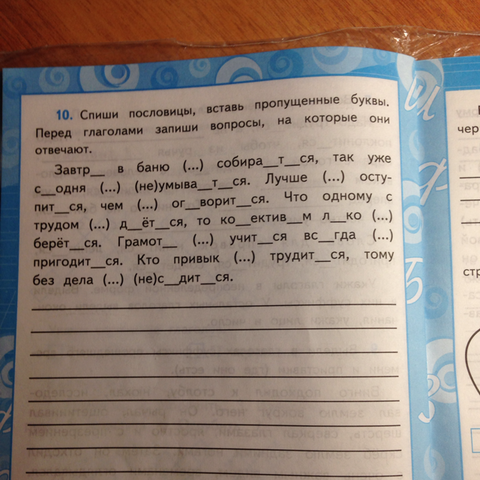 10. Спиши пословицы, вставь пропущенные буквы.
Перед глаголами запиши вопросы, на которые они
отвечают.
Завтр__ в баню (...) собира__т__ся, так уже
с__одня (...) (не)умыва__т__ся. Лучше (...) осту-
пит__ся, чем (...) ог__ворит__ся. Что одному с
трудом (...) д__ёт__ся, то ко__ектив__м л__ко (...)
берёт__ся. Грамот__ (...) учит__ся вс__гда (...)
пригодит__ся. Кто привык (...) трудит__ся, тому
без дела (...) (не)с__дит__ся.